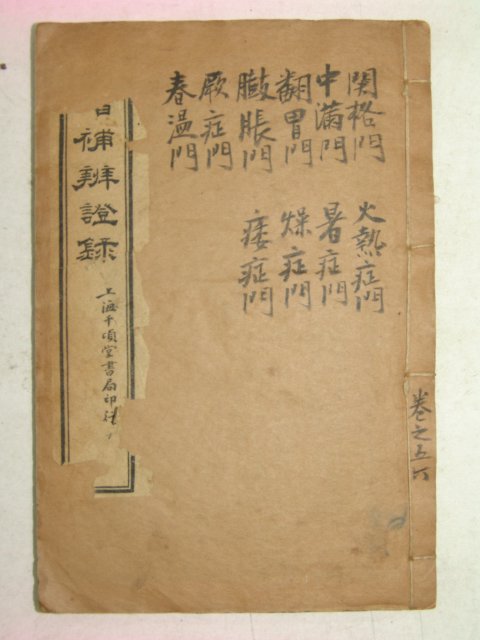 關格門
中滿門
翻胃門
臌脹門
厥症門
春溫門
火熱症門
暑症門
燥症門
痿症門
補辨證錄
上海千頃堂書局印
卷之五六